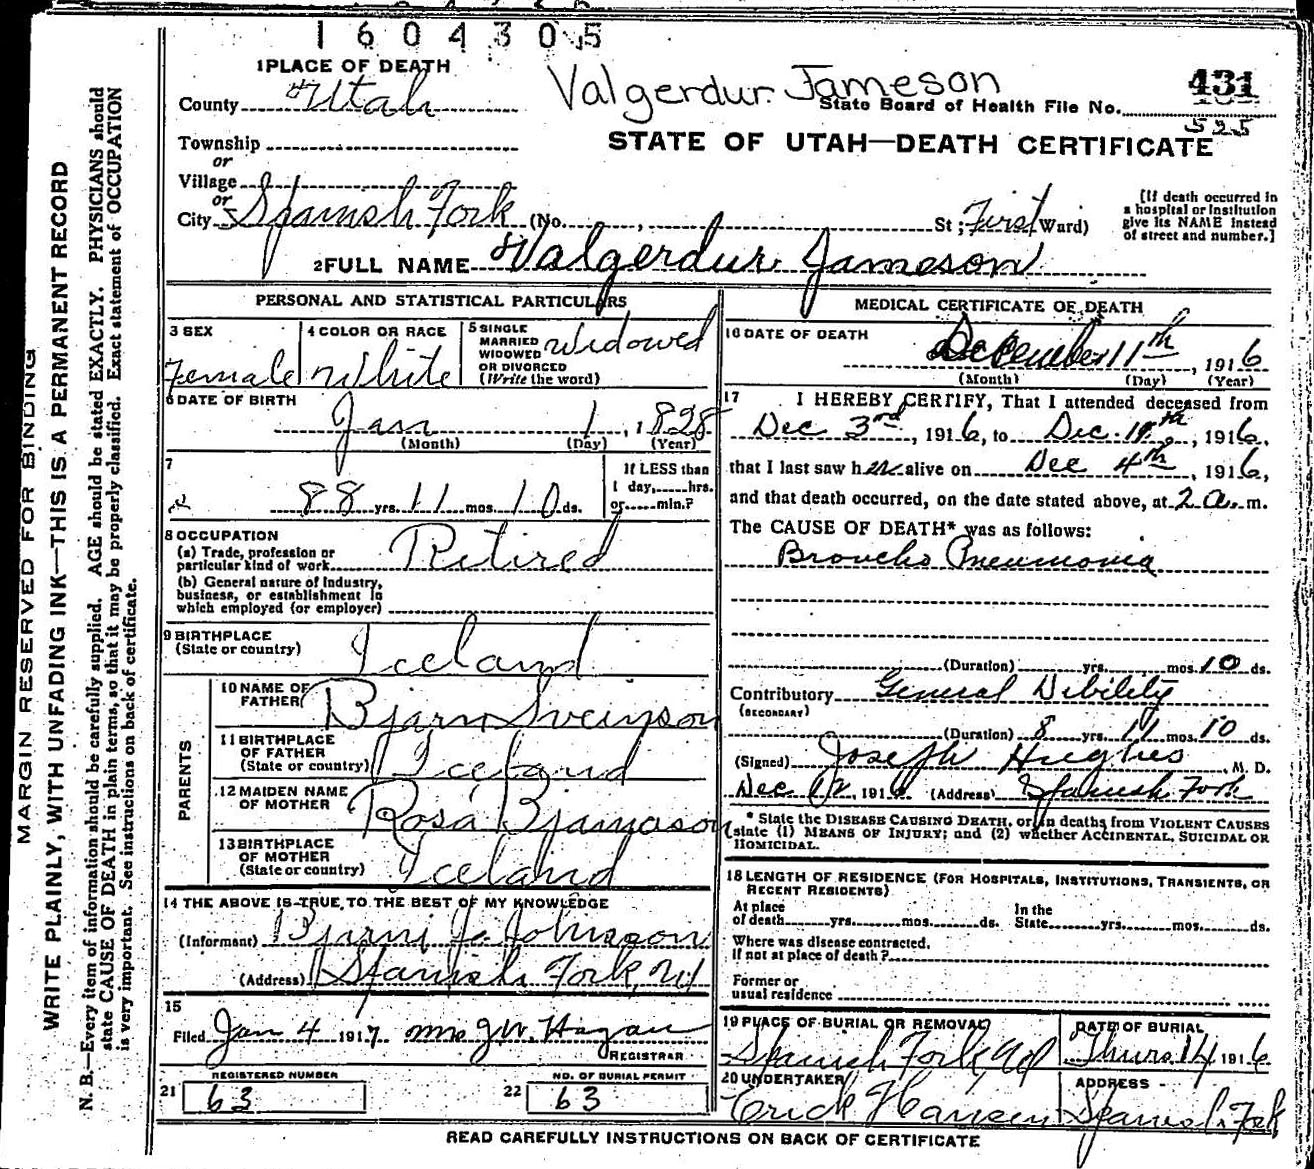 1604305
1 PLACE OF DEATH
Valgerdur Jameson
431
County Utah
State Board of Health File No.
525
Township
or
STATE OF UTAH—DEATH CERTIFICATE
Village
or
City Spanish Fork (No. , St; First Ward)
[If death occurred in
a hospital or institution
give its NAME instead
of street and number.]
2 FULL NAME Valgerdur Jameson
PERSONAL AND STATISTICAL PARTICULARS
3 SEX
Female
4 COLOR OR RACE
White
5 SINGLE
MARRIED
WIDOWED
OR DIVORCED
(Write the word)
Widowed
6 DATE OF BIRTH
Jan 1, 1828
(Month) (Day) (Year)
7
88 yrs. 11 mos. 10 ds.
If LESS than
1 day,.....hrs.
or.....min.?
8 OCCUPATION
(a) Trade, profession or
particular kind of work
Retired
(b) General nature of Industry,
business, or establishment in
which employed (or employer)
9 BIRTHPLACE
(State or country)
Iceland
PARENTS
10 NAME OF
FATHER
Bjarn Sveinson
11 BIRTHPLACE
OF FATHER
(State or country)
Iceland
12 MAIDEN NAME
OF MOTHER
Rosa
13 BIRTHPLACE
OF MOTHER
(State or country)
Iceland
14 THE ABOVE IS TRUE TO THE BEST OF MY KNOWLEDGE
(Informant) Bjarni J. Johnson
(Address) Spanish Fork, Ut
15
Filed Jan 4 1917 Mrs J W. Hagan
REGISTRAR
21 REGISTERED NUMBER
63
22 NO. OF BURIAL PERMIT
63
MEDICAL CERTIFICATE OF DEATH
16 DATE OF DEATH
December 11th, 1916
(Month) (Day) (Year)
17 I HEREBY CERTIFY, That I attended deceased from
Dec 3rd, 1916, to Dec. , 1916,
that I last saw her alive on Dec 4th, 1916,
and that death occurred, on the date stated above, at 2 a. m.
The CAUSE OF DEATH* was as follows:
Broncho Pneumonia
(Duration) yrs. mos. 10 ds.
Contributory General Debility
(SECONDARY)
(Duration) 8 yrs. 11 mos. 10 ds.
(Signed) Joseph Hughes, M. D.
Dec 12, 1916 (Address) Spanish Fork
* State the DISEASE CAUSING DEATH, or in deaths from VIOLENT CAUSES
state (1) MEANS OF INJURY; and (2) whether ACCIDENTAL, SUICIDAL OR
HOMICIDAL.
18 LENGTH OF RESIDENCE (FOR HOSPITALS, INSTITUTIONS, TRANSIENTS, OR
RECENT RESIDENTS)
At place
of death yrs. mos. ds.
In the
State yrs. mos. ds.
Where was disease contracted,
If not at place of death?
Former or
usual residence
19 PLACE OF BURIAL OR REMOVAL
Spanish Fork
DATE OF BURIAL
Thurs 14 1916
20 UNDERTAKER
Erick Hansen
ADDRESS
Spanish Fork
READ CAREFULLY INSTRUCTIONS ON BACK OF CERTIFICATE
MARGIN RESERVED FOR BINDING
WRITE PLAINLY, WITH UNFADING INK—THIS IS A PERMANENT RECORD
N. B.—Every item of information should be carefully supplied. AGE should be stated EXACTLY. PHYSICIANS should
state CAUSE OF DEATH in plain terms, so that it may be properly classified. Exact statement of OCCUPATION
is very important. See instructions on back of certificate.